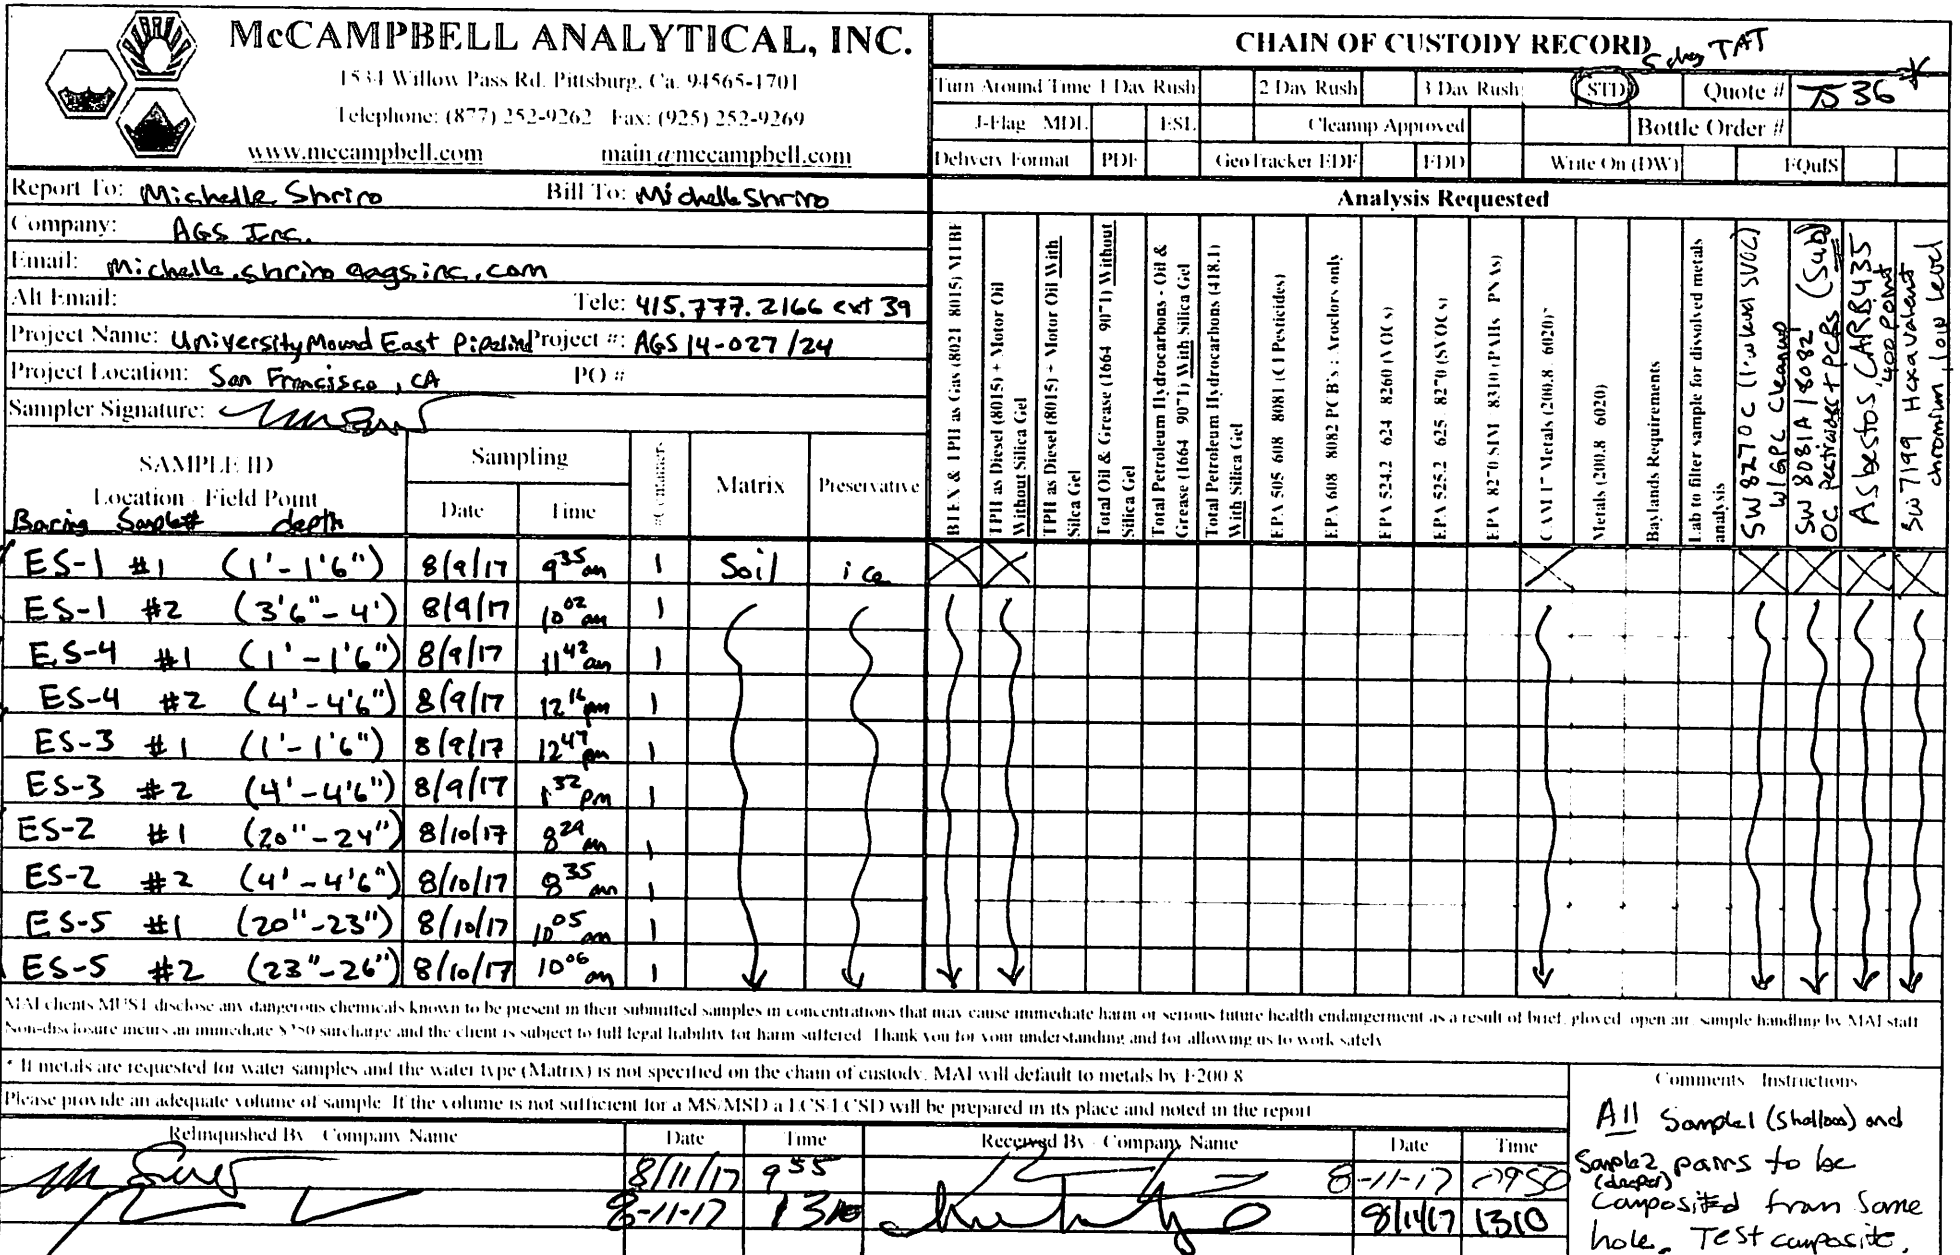 McCAMPBELL ANALYTICAL, INC.
1534 Willow Pass Rd. Pittsburg, Ca. 94565-1701
Telephone: (877) 252-9262 Fax: (925) 252-9269
www.mccampbell.com main@mccampbell.com
CHAIN OF CUSTODY RECORD
5 day TAT
Turn Around Time 1 Day Rush 2 Day Rush 3 Day Rush STD Quote # 7536 *
J-Flag MDL ESL Cleanup Approved Bottle Order #
Delivery Format PDF GeoTracker EDF EDD Write On (DW) EQuIS
Report To: Michelle Shriro Bill To: Michelle Shriro
Company: AGS Inc.
Email: Michelle.shriro@agsinc.com
Alt Email: Tele: 415.777.2166 ext 39
Project Name: University Mound East Pipeline Project #: AGS 14-027/24
Project Location: San Francisco, CA PO #
Sampler Signature:
Analysis Requested
BTEX & TPH as Gas (8021 8015) MTBE
TPH as Diesel (8015) + Motor Oil Without Silica Gel
TPH as Diesel (8015) + Motor Oil With Silca Gel
Total Oil & Grease (1664 9071) Without Silica Gel
Total Petroleum Hydrocarbons - Oil & Grease (1664 9071) With Silica Gel
Total Petroleum Hydrocarbons (418.1) With Silica Gel
EPA 505 608 8081 (Cl Pesticides)
EPA 608 8082 PCB's ; Aroclors only
EPA 524.2 624 8260 (VOCs)
EPA 525.2 625 8270 (SVOCs)
EPA 8270 SIM 8310 (PAHs PNAs)
CAM 17 Metals (200.8 6020)*
Metals (200.8 6020)
Baylands Requirements
Lab to filter sample for dissolved metals analysis
SW8270C (low level SVOC) w/GPC Cleanup
SW 8081A/8082 (Sub) OC pesticides + PCBs
Asbestos, CARB 435 400 point
SW7199 Hexavalent chromium, low level
SAMPLE ID
Location Field Point
Boring Sample# depth
Sampling
Date Time
#Containers
Matrix
Preservative
ES-1 #1 (1'-1'6") 8/9/17 9 35 am 1 Soil ice
ES-1 #2 (3'6"-4') 8/9/17 10 02 am 1
ES-4 #1 (1'-1'6") 8/9/17 11 42 am 1
ES-4 #2 (4'-4'6") 8/9/17 12 16 pm 1
ES-3 #1 (1'-1'6") 8/9/17 12 47 pm 1
ES-3 #2 (4'-4'6") 8/9/17 1 32 pm 1
ES-2 #1 (20"-24") 8/10/17 8 29 am 1
ES-2 #2 (4'-4'6") 8/10/17 8 35 am 1
ES-5 #1 (20"-23") 8/10/17 10 05 am 1
ES-5 #2 (23"-26") 8/10/17 10 06 am 1
MAI clients MUST disclose any dangerous chemicals known to be present in their submitted samples in concentrations that may cause immediate harm or serious future health endangerment as a result of brief, gloved, open air, sample handling by MAI staff.
Non-disclosure incurs an immediate $250 surcharge and the client is subject to full legal liability for harm suffered. Thank you for your understanding and for allowing us to work safely
* If metals are requested for water samples and the water type (Matrix) is not specified on the chain of custody, MAI will default to metals by E200.8
Please provide an adequate volume of sample. If the volume is not sufficient for a MS/MSD a LCS/LCSD will be prepared in its place and noted in the report
Relinquished By Company Name Date Time Received By Company Name Date Time
8/11/17 9 55 8-11-17 0950
8-11-17 1310 8/11/17 1310
Comments Instructions
All Sample1 (Shallow) and
Sample2 (deeper) pairs to be
composited from same
hole. Test composite.